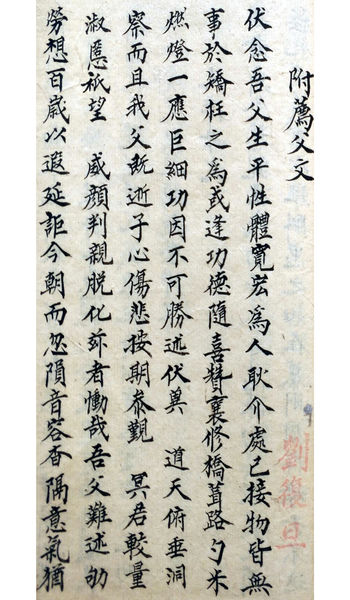 附薦父文
伏念吾父生平性體寬宏為人耿介處己接物皆無
事於矯枉之為或逢功德隨喜贊襄修橋葺路勺米
燃燈一應巨細功因不可勝述伏冀 道天俯垂洞
察而且我父既逝子心傷悲按期叅覲 冥君較量
淑慝祇望 威顏判親脫化茲者慟哉吾父難述劬
勞想百歲以遐延詎今朝而忽隕音容杳隔意氣猶
劉復旦